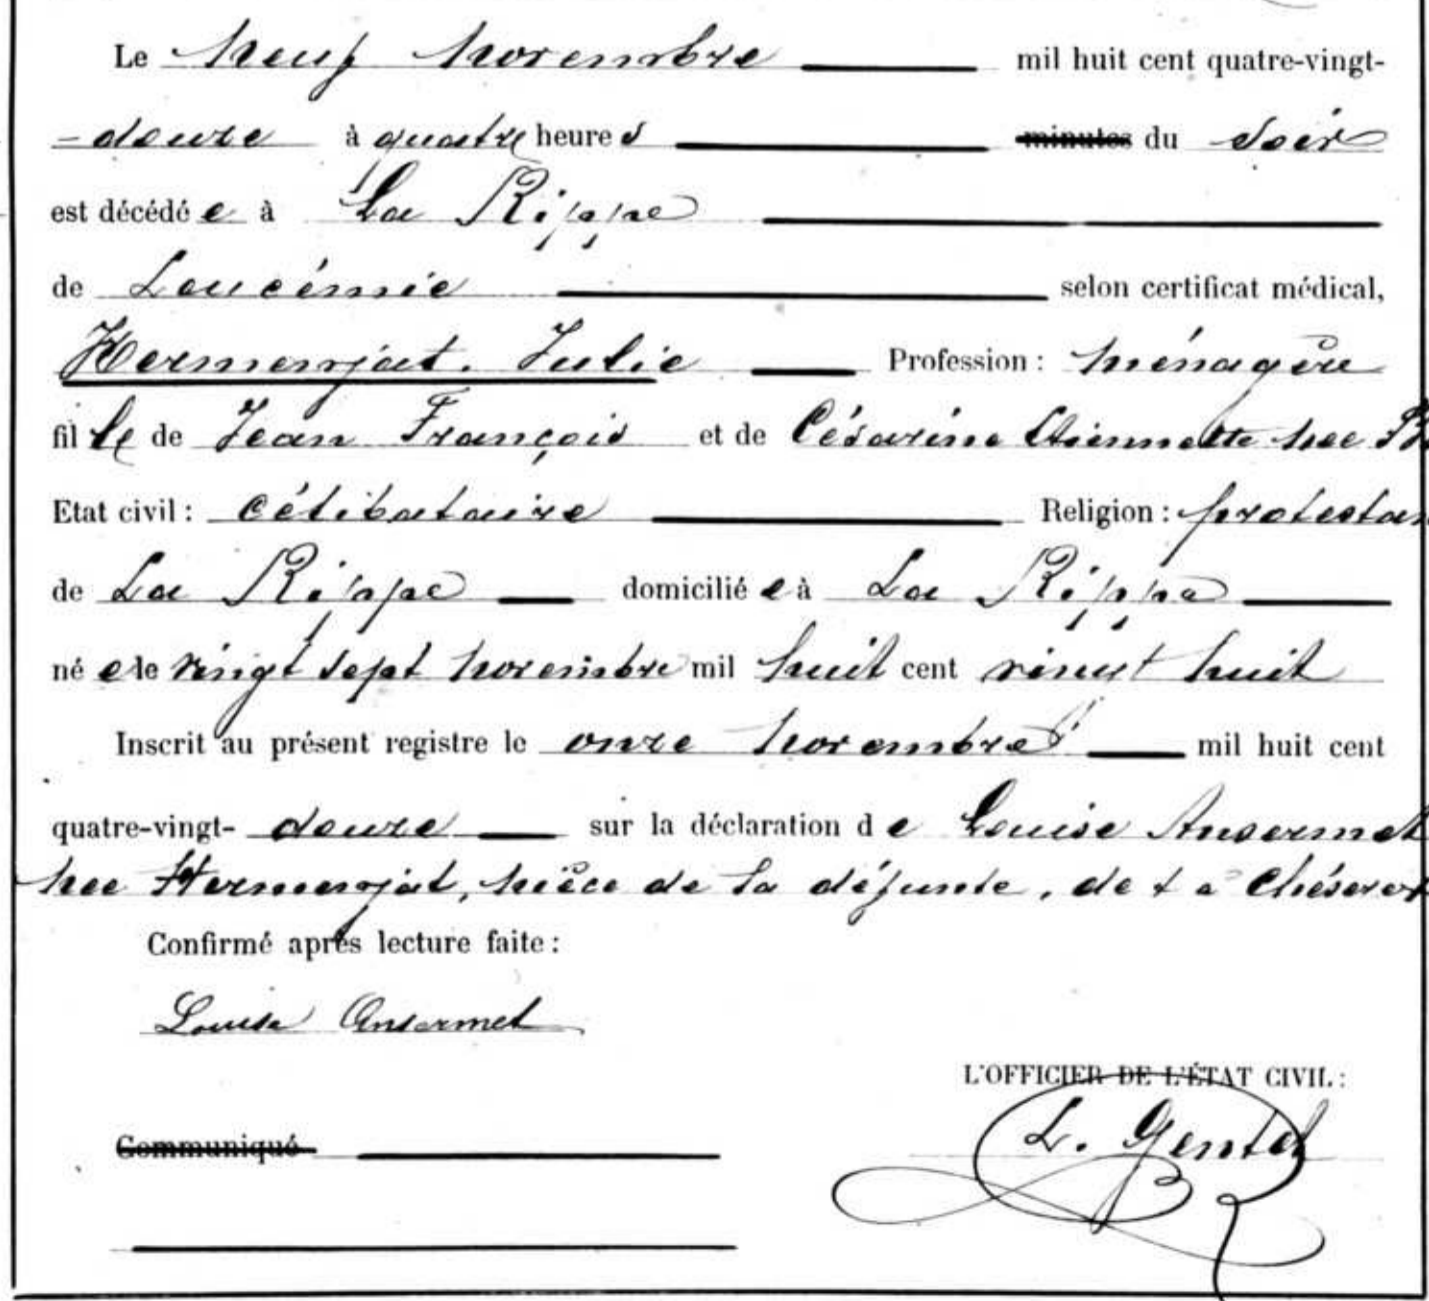 Le neuf novembre mil huit cent quatre-vingt-
-douze à quatre heures minutes du soir
est décédée à La Rippe
de Leucémie selon certificat médical,
Hermenjat. Julie Profession : ménagère
fille de Jean François et de Césarine Etiennette née
Etat civil : célibataire Religion : protestan
de La Rippe domiciliée à La Rippe
née le vingt sept novembre mil huit cent vingt huit
Inscrit au présent registre le onze novembre mil huit cent
quatre-vingt- douze sur la déclaration de Louise Ansermet
née Hermenjat, nièce de la défunte, de & à Chéserex
Confirmé après lecture faite :
Louise Ansermet
L'OFFICIER DE L'ÉTAT CIVIL :
Communiqué